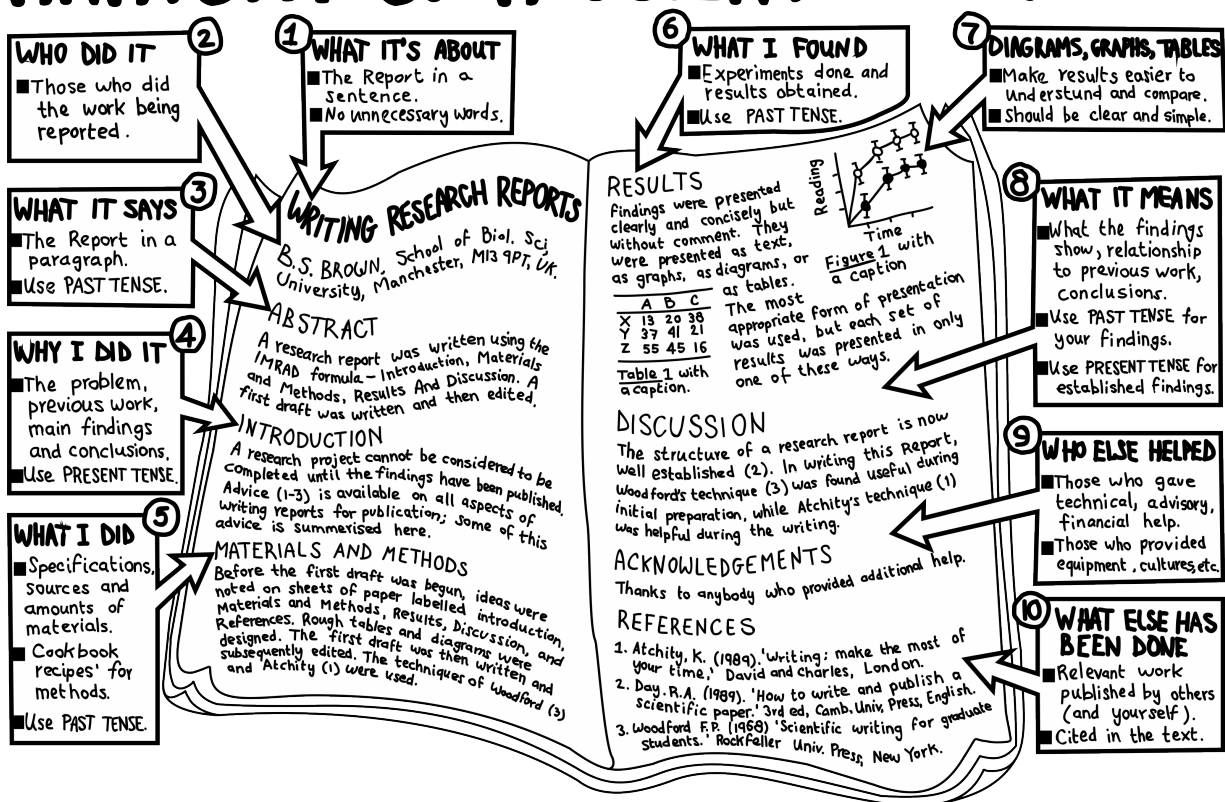 2
WHO DID IT
Those who did
the work being
reported.
1
WHAT IT'S ABOUT
The Report in a
sentence.
No unnecessary words.
6
WHAT I FOUND
Experiments done and
results obtained.
Use PAST TENSE.
7
DIAGRAMS, GRAPHS, TABLES
Make results easier to
understund and compare.
Should be clear and simple.
3
WHAT IT SAYS
The Report in a
paragraph.
Use PAST TENSE.
4
WHY I DID IT
The problem,
previous work,
main findings
and conclusions.
Use PRESENT TENSE.
5
WHAT I DID
Specifications,
sources and
amounts of
materials.
Cookbook
recipes' for
methods.
Use PAST TENSE.
WRITING RESEARCH REPORTS
B.S. BROWN, School of Biol. Sci,
University, Manchester, M13 9PT, UK.
ABSTRACT
A research report was written using the
IMRAD formula – Introduction, Materials
and Methods, Results And Discussion. A
first draft was written and then edited.
INTRODUCTION
A research project cannot be considered to be
completed until the findings have been published.
Advice (1-3) is available on all aspects of
writing reports for publication; some of this
advice is summerised here.
MATERIALS AND METHODS
Before the first draft was begun, ideas were
noted on sheets of paper labelled introduction,
Materials and Methods, Results, Discussion, and
References. Rough tables and diagrams were
designed. The first draft was then written and
subsequently edited. The techniques of Woodford (3)
and 'Atchity (1) were used.
RESULTS
Findings were presented
clearly and concisely but
without comment. They
were presented as text,
as graphs, as diagrams, or
as tables.
The most
appropriate form of presentation
was used, but each set of
results was presented in only
one of these ways.
A B C
X 13 20 38
Y 37 41 21
Z 55 45 16
Table 1 with
a caption.
Reading
Time
Figure 1 with
a caption
DISCUSSION
The structure of a research report is now
well established (2). In writing this Report,
Woodford's technique (3) was found useful during
initial preparation, while Atchity's technique (1)
was helpful during the writing.
ACKNOWLEDGEMENTS
Thanks to anybody who provided additional help.
REFERENCES
1. Atchity, K. (1989).'Writing: make the most of
your time,' David and Charles, London.
2. Day. R.A. (1989). 'How to write and publish a
scientific paper.' 3rd ed, Camb. Univ, Press, English.
3. Woodford F.P. (1968) 'Scientific writing for graduate
students.' Rockfeller Univ. Press, New York.
8
WHAT IT MEANS
What the findings
show, relationship
to previous work,
conclusions.
Use PAST TENSE for
your findings.
Use PRESENT TENSE for
established findings.
9
WHO ELSE HELPED
Those who gave
technical, advisory,
financial help.
Those who provided
equipment, cultures, etc.
10
WHAT ELSE HAS
BEEN DONE
Relevant work
published by others
(and yourself).
Cited in the text.